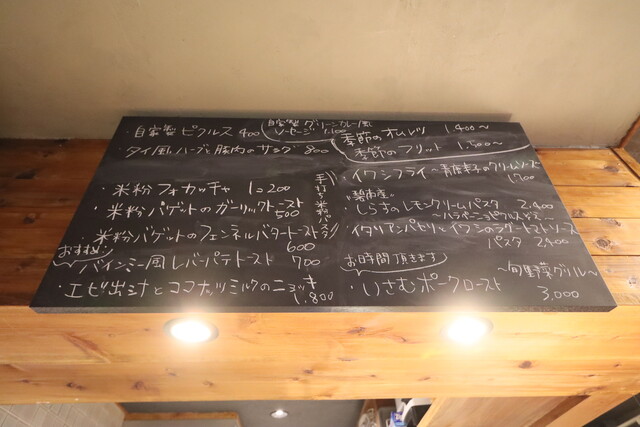 ・自家製 ピクルス 400
自家製 グリーンカレー風
ソーセージ 1.100
・タイ風ハーブと豚肉のサラダ 800
・米粉 フォカッチャ 1コ 200
・米粉 バゲットのガーリックトースト
500
・米粉バゲットのフェンネルバタートースト
600
おすすめ
・バインミー風 レバーパテトースト 700
・エビ出汁とココナッツミルクのニョッキ
1.800
季節のオムレツ 1.400〜
季節のフリット 1.500〜
・イワシフライ 〜青唐辛子のクリームソース〜
1700
手打ち米粉パスタ
碧南産
・しらすのレモンクリームパスタ 2.400
〜ハラペーニョピクルス
・イタリアンパセリとイワシのラグートマトソース
パスタ 2400
お時間頂きます
・いさむポークロースト
〜旬野菜グリル〜
3,000